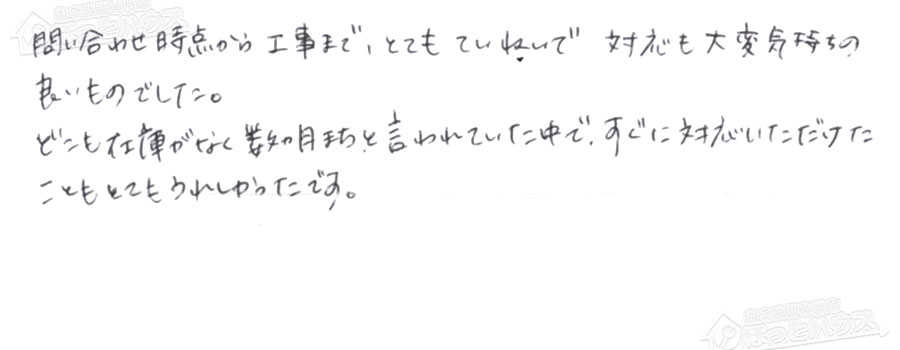 問い合わせ時点から工事まで、とてもていねいで 対応も大変気持ちの
良いものでした。
どこも在庫がなく数ヶ月まちと言われていた中で、すぐに対応いただけた
こともとてもうれしかったです。
ほっとハウス